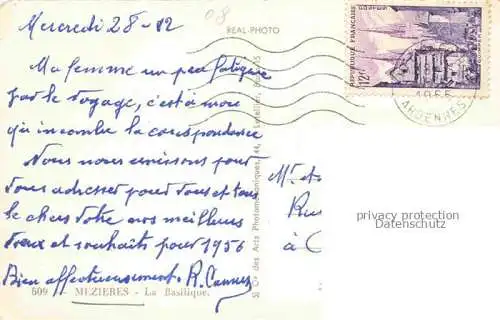 Mercredi 28-12
08
REAL-PHOTO
Ma femme un peu fatiguée
par le voyage, c'est à moi
qu'incombe la correspondance
Nous nous unissons pour
vous adresser pour vous et tous
le chers Votre nos meilleurs
vœux et souhaits pour 1956
Bien affectueusement. R.
609 - MEZIERES - La Basilique.
des Arts Photomécaniques, 44,
REPUBLIQUE FRANÇAISE
POSTES
12F
1955
ARDENNES
Mr et
Rue
à
privacy protection
Datenschutz